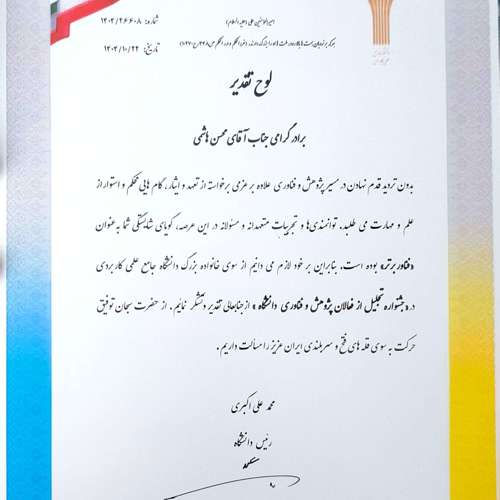 امیرالمؤمنین علی (علیه السلام)
شماره: ۱۴۰۴/۲۶۶۰۸
تاریخ: ۱۴۰۴/۱۰/۲۲
لوح تقدیر
برادر گرامی جناب آقای محسن هاشمی
بدون تردید قدم نهادن در مسیر پژوهش و فناوری علاوه بر عزمی برخواسته از تعهد و ایثار، گام هایی محکم و استوار از
علم و مهارت می طلبد. توانمندی‌ها و تجربیات متعهدانه و مسئولانه در این عرصه، گویای شایستگی شما به‌عنوان
«فناور برتر» بوده است، بنابراین بر خود لازم می دانیم از سوی خانواده بزرگ دانشگاه جامع علمی کاربردی
در «جشنواره تجلیل از فعالان پژوهش و فناوری دانشگاه» از جنابعالی تقدیر و تشکر نمائیم. از حضرت سبحان توفیق
حرکت به سوی قله های فتح و سربلندی ایران عزیز را مسألت داریم.
محمد علی اکبری
رئیس دانشگاه